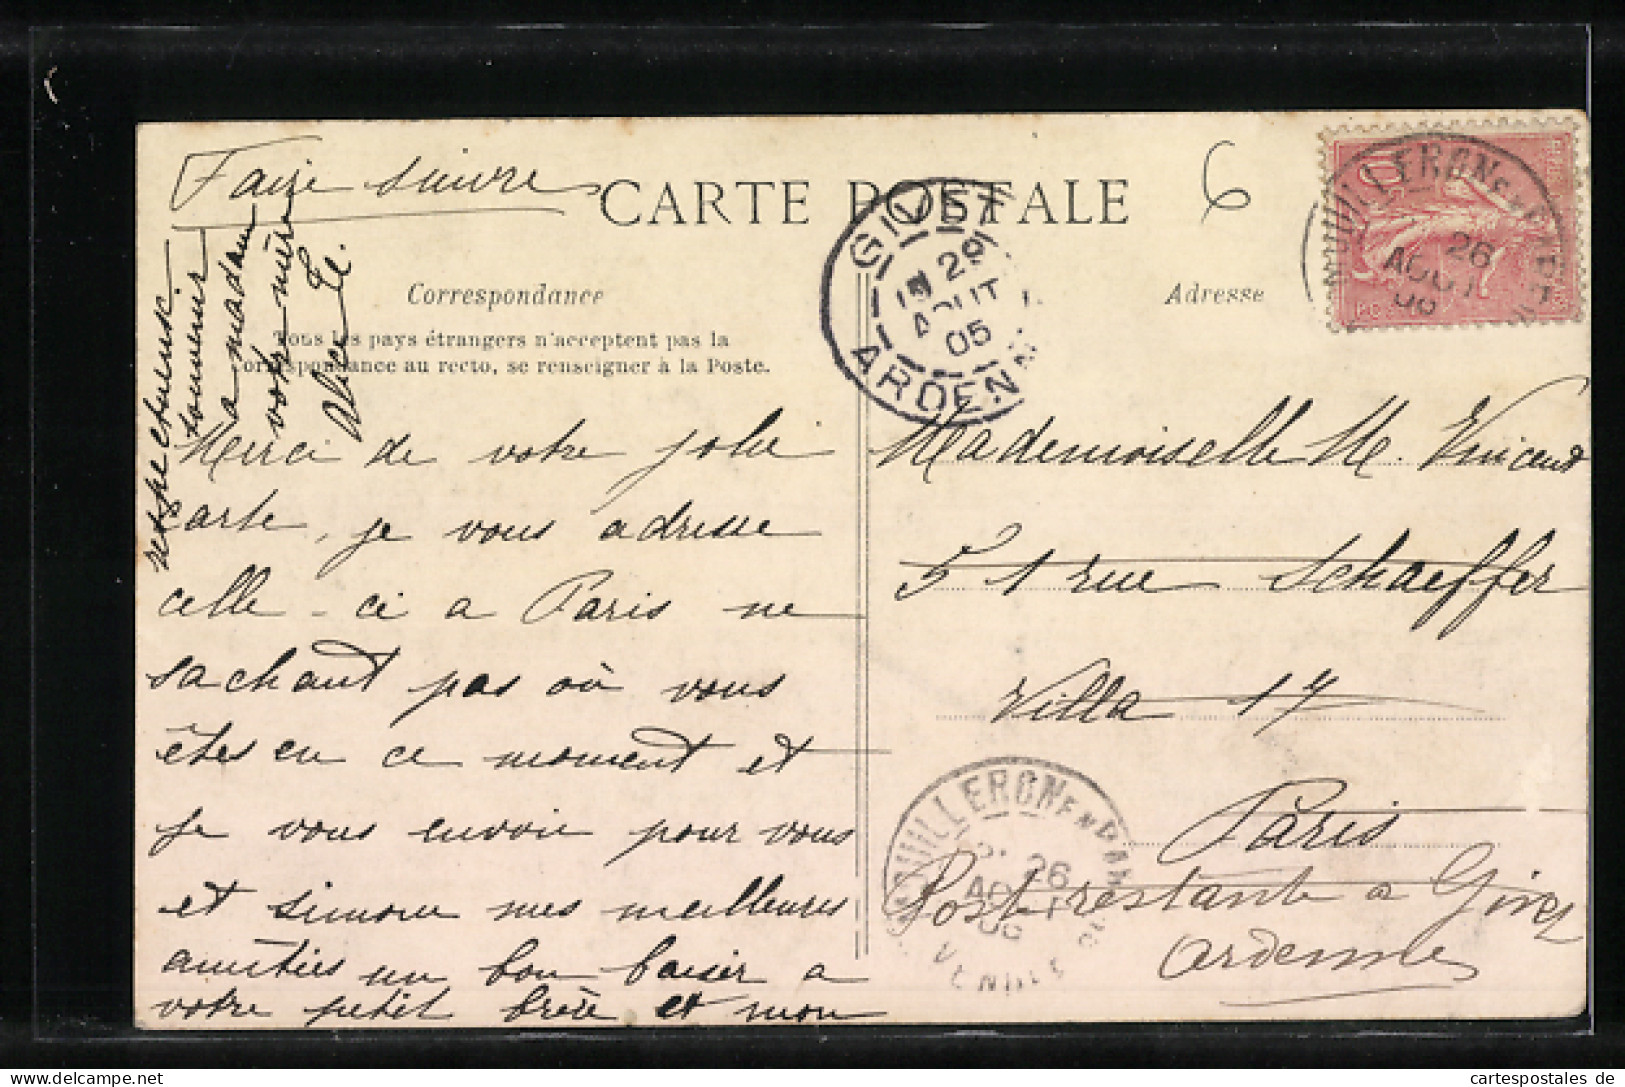 Faire suivre
CARTE POSTALE
6
Correspondance
Adresse
Tous les pays étrangers n'acceptent pas la
correspondance au recto, se renseigner à la Poste.
GIVET
29
AOUT
05
ARDENN
10
MOUILLERON EN PAR
26
AOUT
POS
Merci de votre jolie
carte, je vous adresse
celle-ci a Paris ne
sachant pas où vous
êtes en ce moment et
je vous envoie pour vous
et Simone mes meilleures
amitiés un bon baiser a
votre petit frère et mon
respectueux
souvenir
a madame
votre mère
Alice
Mademoiselle M. Vincent
51 rue Schaeffer
Villa 17
Paris
Poste restante a Givet
Ardennes
MOUILLERON EN PAR
26
AOUT
VENDEE
cartespostales de